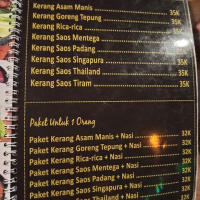 Kerang Asam Manis 35K
Kerang Goreng Tepung 35K
Kerang Rica-rica 35K
Kerang Saos Mentega 35K
Kerang Saos Padang 35K
Kerang Saos Singapura 35K
Kerang Saos Thailand 35K
Kerang Saos Tiram 35K
Paket Untuk 1 Orang
Paket Kerang Asam Manis + Nasi 32K
Paket Kerang Goreng Tepung + Nasi 32K
Paket Kerang Rica-rica + Nasi 32K
Paket Kerang Saos Mentega + Nasi 32K
Paket Kerang Saos Padang + Nasi 32K
Paket Kerang Saos Singapura + Nasi 32K
Kerang Saos Thailand + Nasi 32K